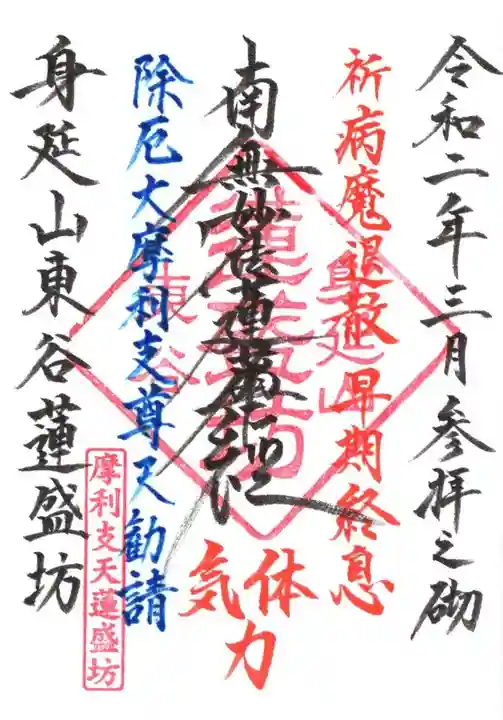 令和二年三月参拝之砌
祈病魔退散早期終息
南無妙法蓮華経
体力
気
除厄大摩利支尊天勧請
身延山東谷蓮盛坊
身延山
蓮盛坊
東谷
摩利支天蓮盛坊